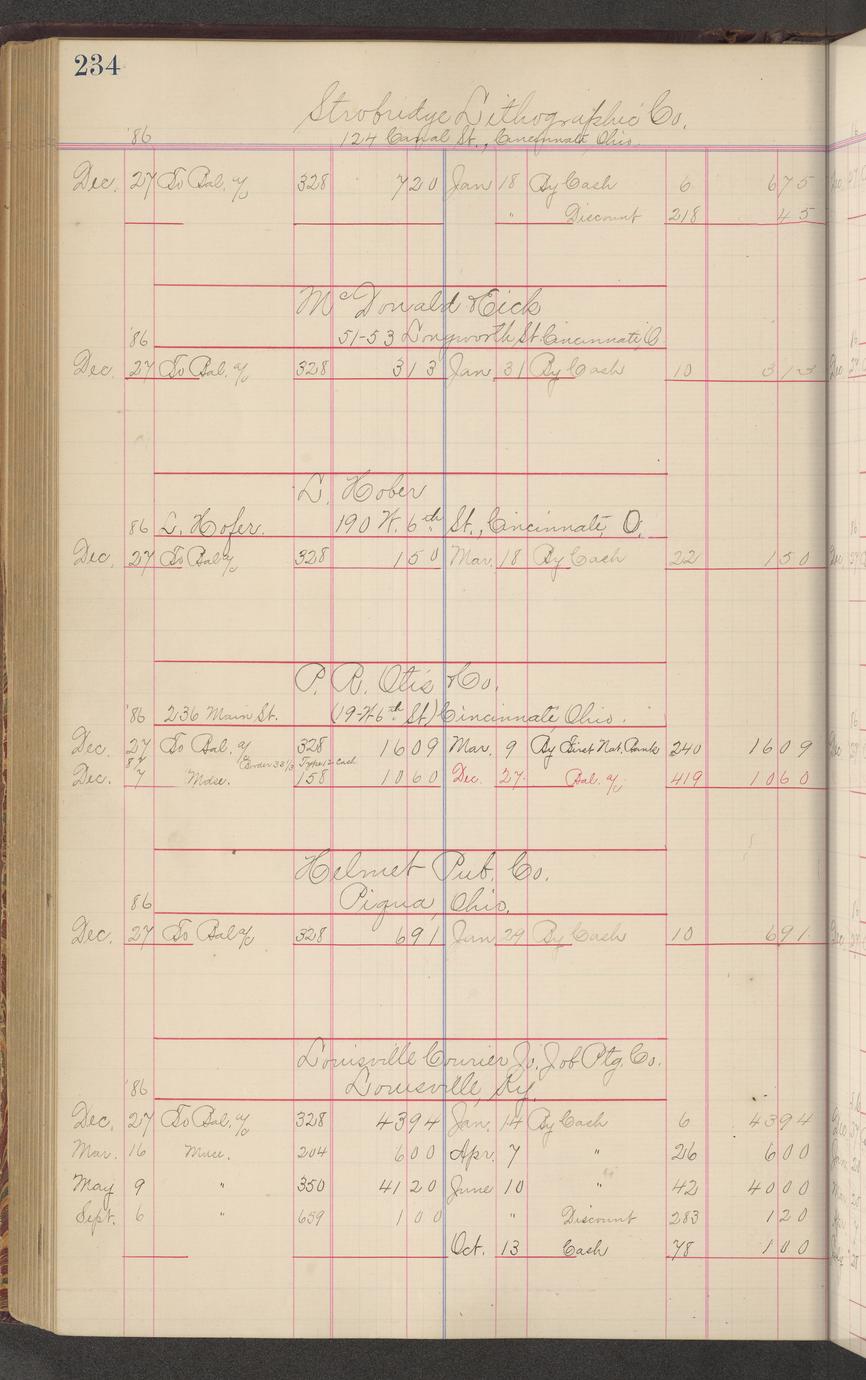 234
Strobridge Lithographic Co.
'86 124 Canal St., Cincinnati Ohio.
Dec. 27 To Bal. a/c 328 720 Jan 18 By Cash 6 675
" Discount 218 45
McDonald & Eick
'86 51-53 Longworth St. Cincinnati O.
Dec. 27 To Bal. a/c 328 313 Jan. 31 By Cash 10 313
L. Hober
86 L. Hofer. 190 W. 6th St., Cincinnati, O.
Dec. 27 To Bal a/c 328 150 Mar. 18 By Cash 22 150
P. R. Otis & Co.
'86 236 Main St. (19-W 6th St) Cincinnati, Ohio.
Dec. 27 To Bal. a/c 328 1609 Mar. 9 By First Nat. Bank 240 1609
87 Border 33 1/3 Type 12 Cash
Dec. 7 Mdse. 158 1060 Dec. 27 Bal. a/c 419 1060
Helmet Pub. Co.
86 Piqua, Ohio.
Dec. 27 To Bal a/c 328 691 Jan 29 By Cash 10 691
Louisville Courier Jo. Job Ptg. Co.
'86 Louisville Ky.
Dec. 27 To Bal. a/c 328 4394 Jan. 14 By Cash 6 4394
Mar. 16 204 600 Apr. 7 " 26 600
May 9 " 350 4120 June 10 " 42 4000
Sept. 6 " 659 100 " Discount 283 120
Oct. 13 Cash 78 100